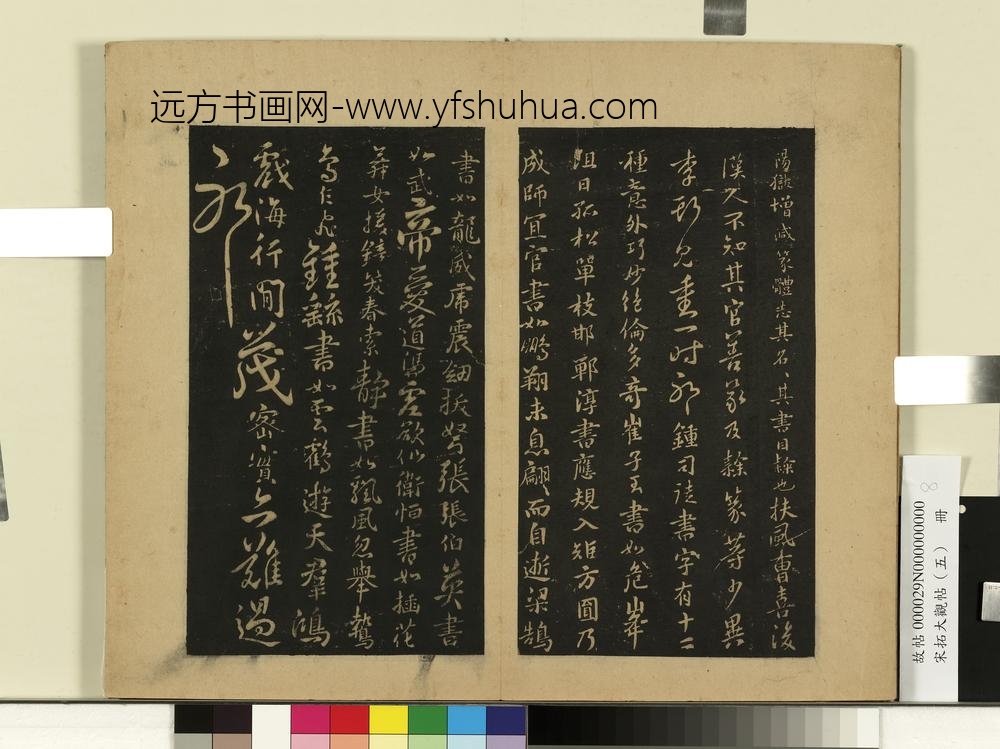 远方书画网-www.yfshuhua.com
陽獄增减篆體志其名、其書曰隸也扶風曹喜後
漢人不知其官善篆及隸篆等少異
李斯見重一时永鍾司徒書字有十二
種意外巧妙絶倫多奇崔子玉書如危峯
阻日孤松單枝邯鄲淳書應規入矩方圓乃
成師冝官書如鵬翔未息翩〻而自逝梁鵠
書如龍威虎震劒拔弩張張伯英書
如武帝愛道凴虚欲仙衛恒書如插花
舞女援鏡笑春索靖書如飄風忽舉鷙
鳥乍飛鍾繇書如雲鶴遊天羣鴻
戲海行間茂密實亦難過
〻永
故帖000029N000000000
宋拓大觀帖（五） 冊
8